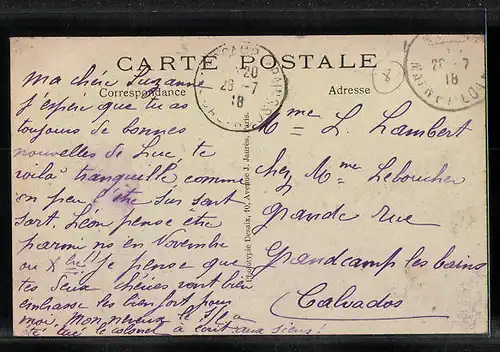 CARTE POSTALE
Correspondance
Adresse
ma chère Suzanne
j'espère que tu as
toujours de bonnes
nouvelles de Luc, te
voilà tranquille comme
on peu l'être sur
sort. Léon pense être
parmi ns en Novembre
ou Xbre! Je pense que
tes deux chéries vont bien
embrasse les bien fort pour
moi. Mon neveu le
le colonel a écrit aux siens!
Mme L. Lambert
chez Mme Leboucher
grande rue
Grandcamp les bains
Calvados
Phototypie Desaix, 10, Avenue J. Jaurès, Paris.
GRANDCAMP
20
28-7
18
28-7
18